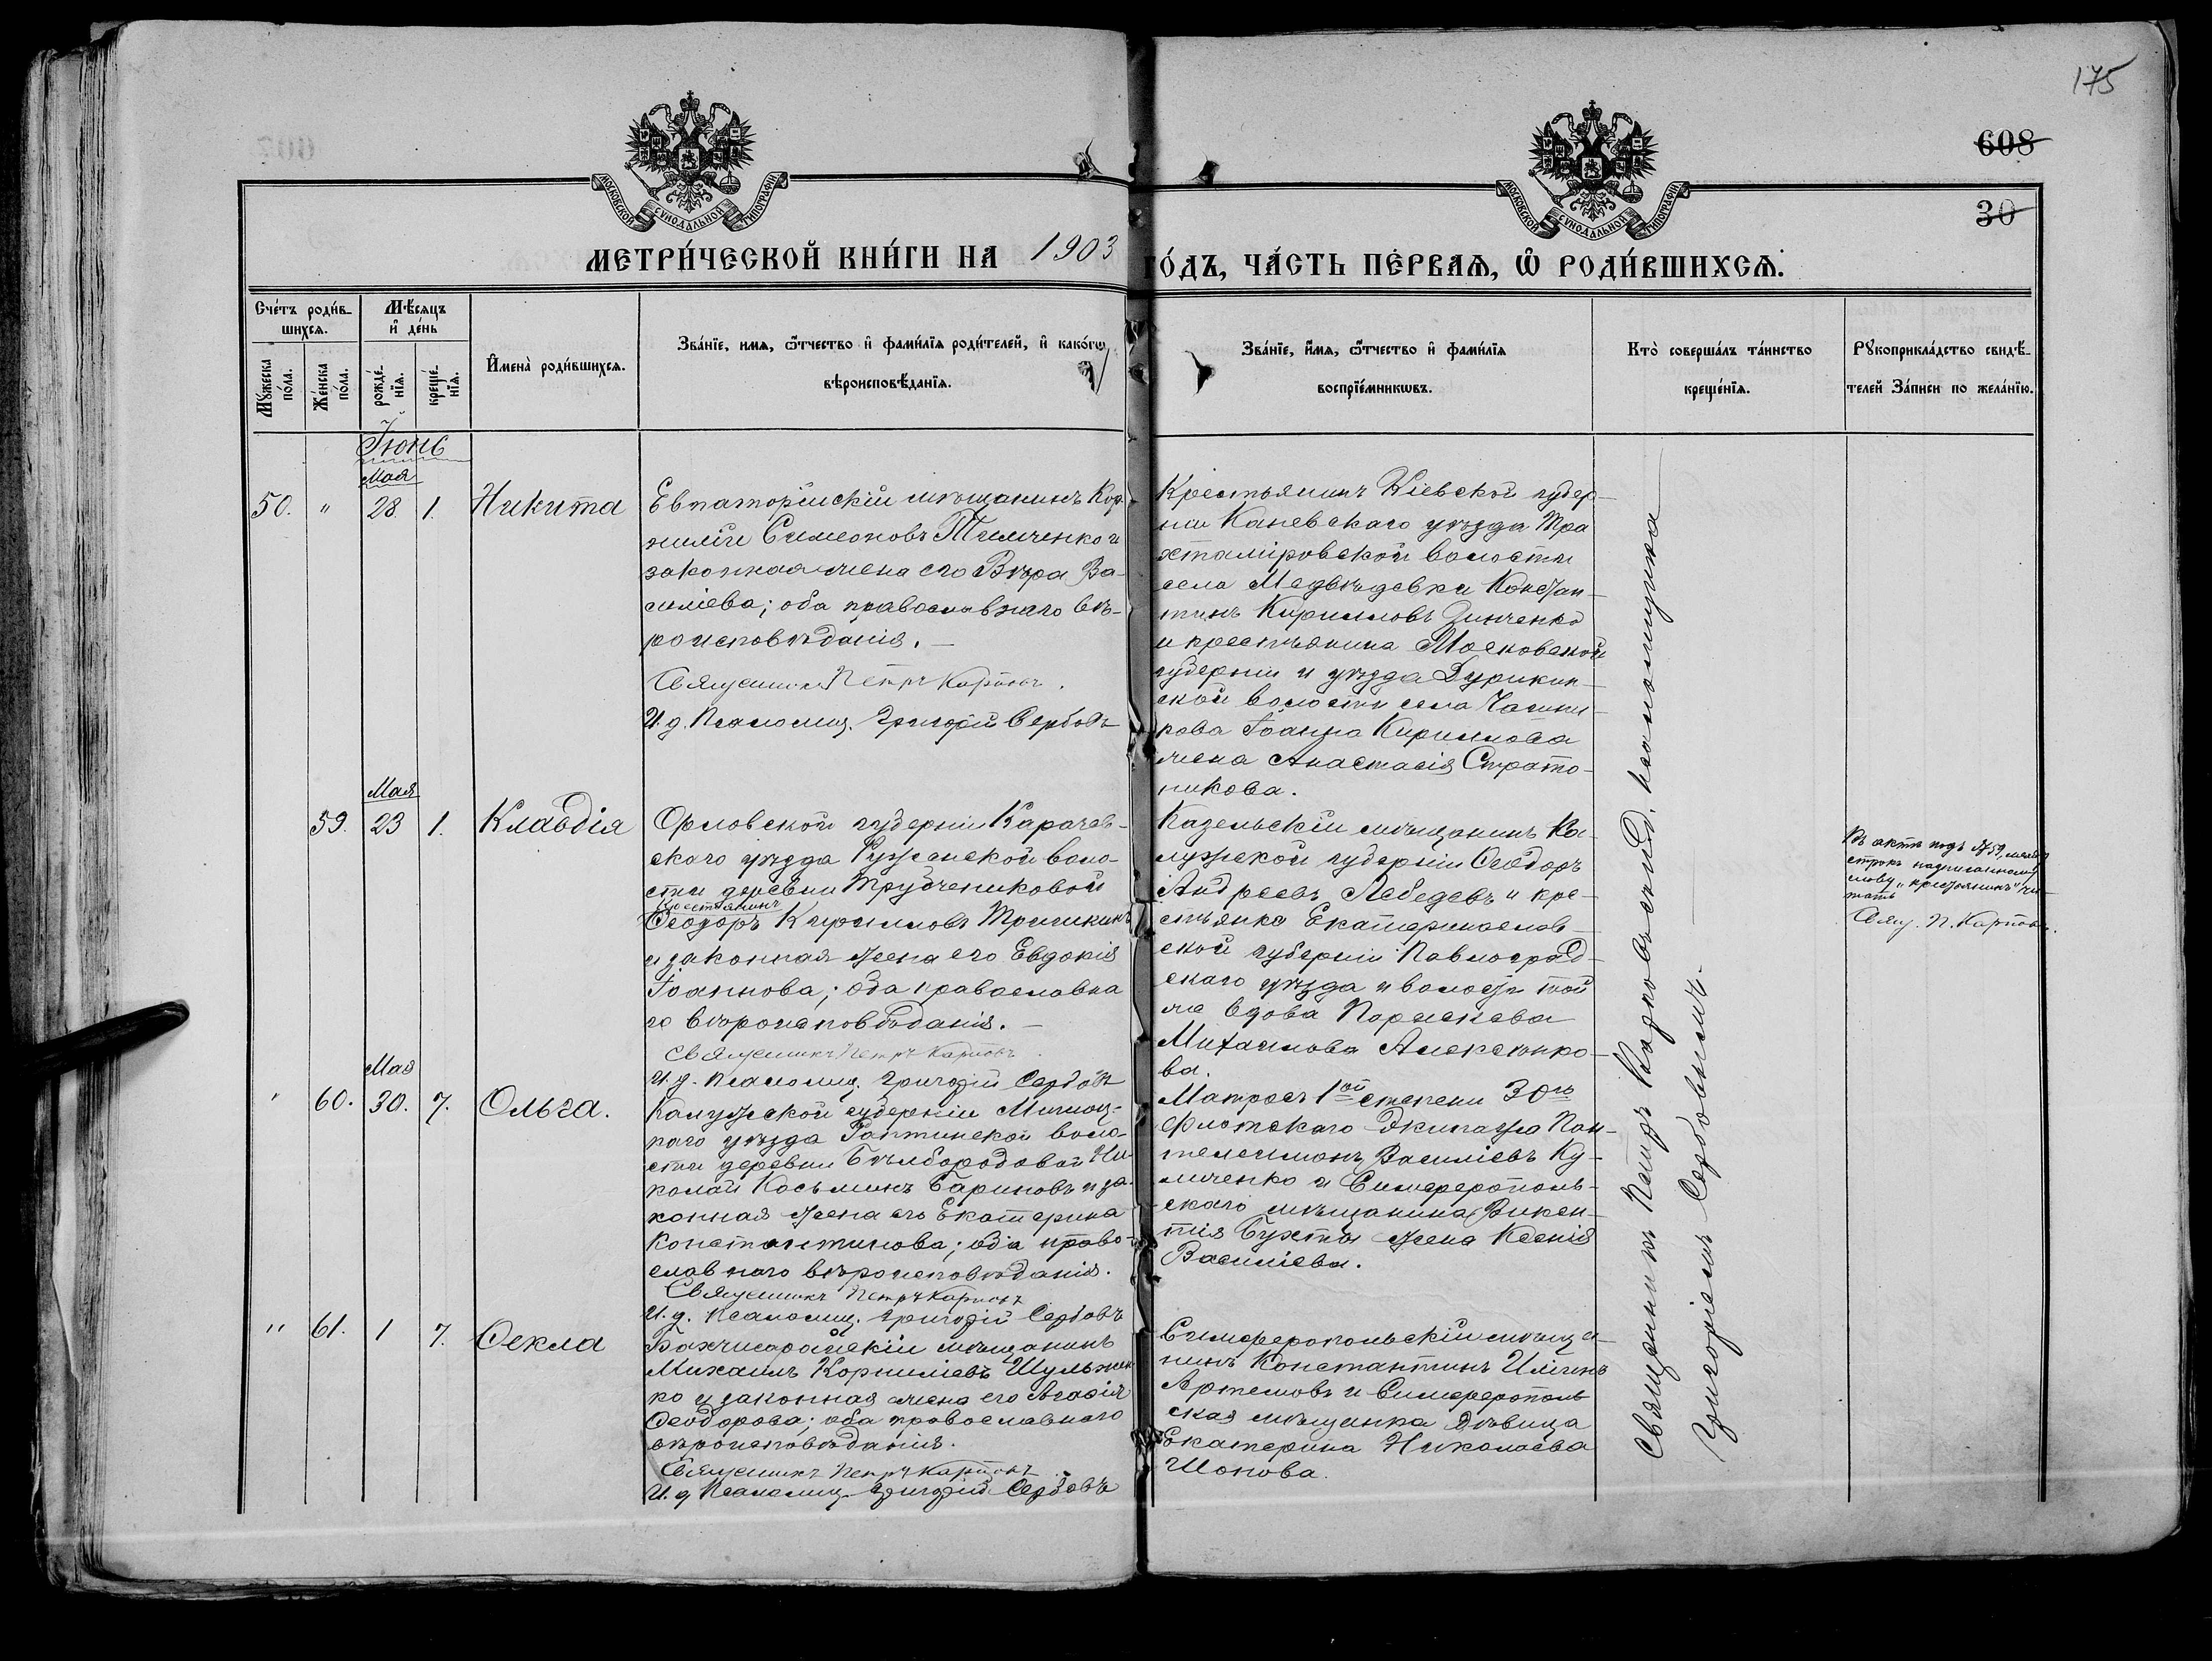 175
608
30
МОСКОВСКОЙ СѴНОДАЛЬНОЙ ТИПОГРАФІИ
МОСКОВСКОЙ СѴНОДАЛЬНОЙ ТИПОГРАФІИ
МЕТРИ́ЧЕСКОЙ КНИ́ГИ НА 1903 ГО́ДЪ, ЧА́СТЬ ПЕ́РВАЯ, Ѽ РОДИ́ВШИХСЯ.
Сче́тъ роди́в-
шихся.
Мѣ́сяцъ
и҆ де́нь
Мꙋжеска по́ла.
Же́нска по́ла.
рожде́-
нїѧ.
креще́-
нїѧ.
И҆мена̀ роди́вшихся.
Зва́нїе, имѧ, ѻ҆́тчество и҆ фами́лїѧ роди́телей, и҆ како́гѡ
вѣроисповѣ́данїѧ.
Зва́нїе, и҆́мѧ, ѻ҆́тчество и҆ фами́лїѧ
воспрїе́мникѡвъ.
Кто̀ соверша́лъ та́инство
креще́нїѧ.
Рꙋкоприкла́дство свидѣ́-
телей За́писи по жела́нїю.
Іюнь
Мая
50. " 28. 1. Никита
Евпаторійскій мѣщанинъ Кор-
нилій Симеоновъ Тимченко и
законная жена его Вѣра Ва-
силіева; оба православнаго вѣ-
роисповѣданія. —
Священникъ Петръ Карповъ.
И. д. Псаломщ. Григорій Сербовъ
Крестьянинъ Кіевской губер-
ніи Каневскаго уѣзда Тра
хтаміровской волости
села Медвѣдевки Констан-
тинъ Кирилловъ Зинченко
и крестьянина Московской
губерніи и уѣзда Дурикин-
ской волости села Чашни-
кова Іоанна Кириллова
жена Анастасія Страто-
никова.
Мая
59. 23 1. Клавдія
Орловской губерніи Карачев-
скаго уѣзда Руженской воло-
сти деревни Трубчениковой
крестьянинъ
Ѳеодоръ Кирилловъ Тришкинъ
и законная жена его Евдокія
Іоаннова; оба православна
го вѣроисповѣданія. —
Священникъ Петръ Карповъ.
И. д. Псаломщ. Григорій Сербовъ
Казельскій мѣщанинъ Ка-
лужской губерніи Ѳеодоръ
Андреевъ Лебедевъ и кре-
стьянка Екатеринослав-
ской губерніи Павлоград-
скаго уѣзда и волости той
же вдова Параскева
Михаилова Алексѣнко-
ва.
Въ актѣ подъ № 59, между
строкъ надписанному
слову "крестьянинъ" чи-
тать
Свящ. П. Карповъ.
Мая
" 60. 30. 7. Ольга.
Калужской губерніи
уѣзда воло-
сти деревни Бѣлбородовой Ни-
колай Косьминъ Бариновъ и за-
конная жена его Екатерина
Константинова; оба право-
славнаго вѣроисповѣданія.
Священникъ Петръ Карповъ
И. д. Псаломщ. Григорій Сербовъ
Матросъ 1ой степени 30го
флотскаго экипажа Пан-
телеимонъ Василіевъ Ку-
личенко и Симферополь-
скаго мѣщанина Викен-
тія Бухты жена Ксенія
Василіева.
" 61. 1 7. Ѳекла
Бахчисарайскій мѣщанинъ
Михаилъ Корниліевъ Шульжен
ко и законная жена его Агаѳія
Ѳеодорова; оба православнаго
вѣроисповѣданія.
Священникъ Петръ Карповъ
И. д. Псаломщ. Григорій Сербовъ
Симферопольскій мѣща-
нинъ Константинъ
Артемовъ и Симферополь
ская мѣщанка дѣвица
Екатерина Николаева
Шокова.
Священникъ Петръ Карповъ съ и. д. псаломщика
Григоріемъ Сербовымъ.